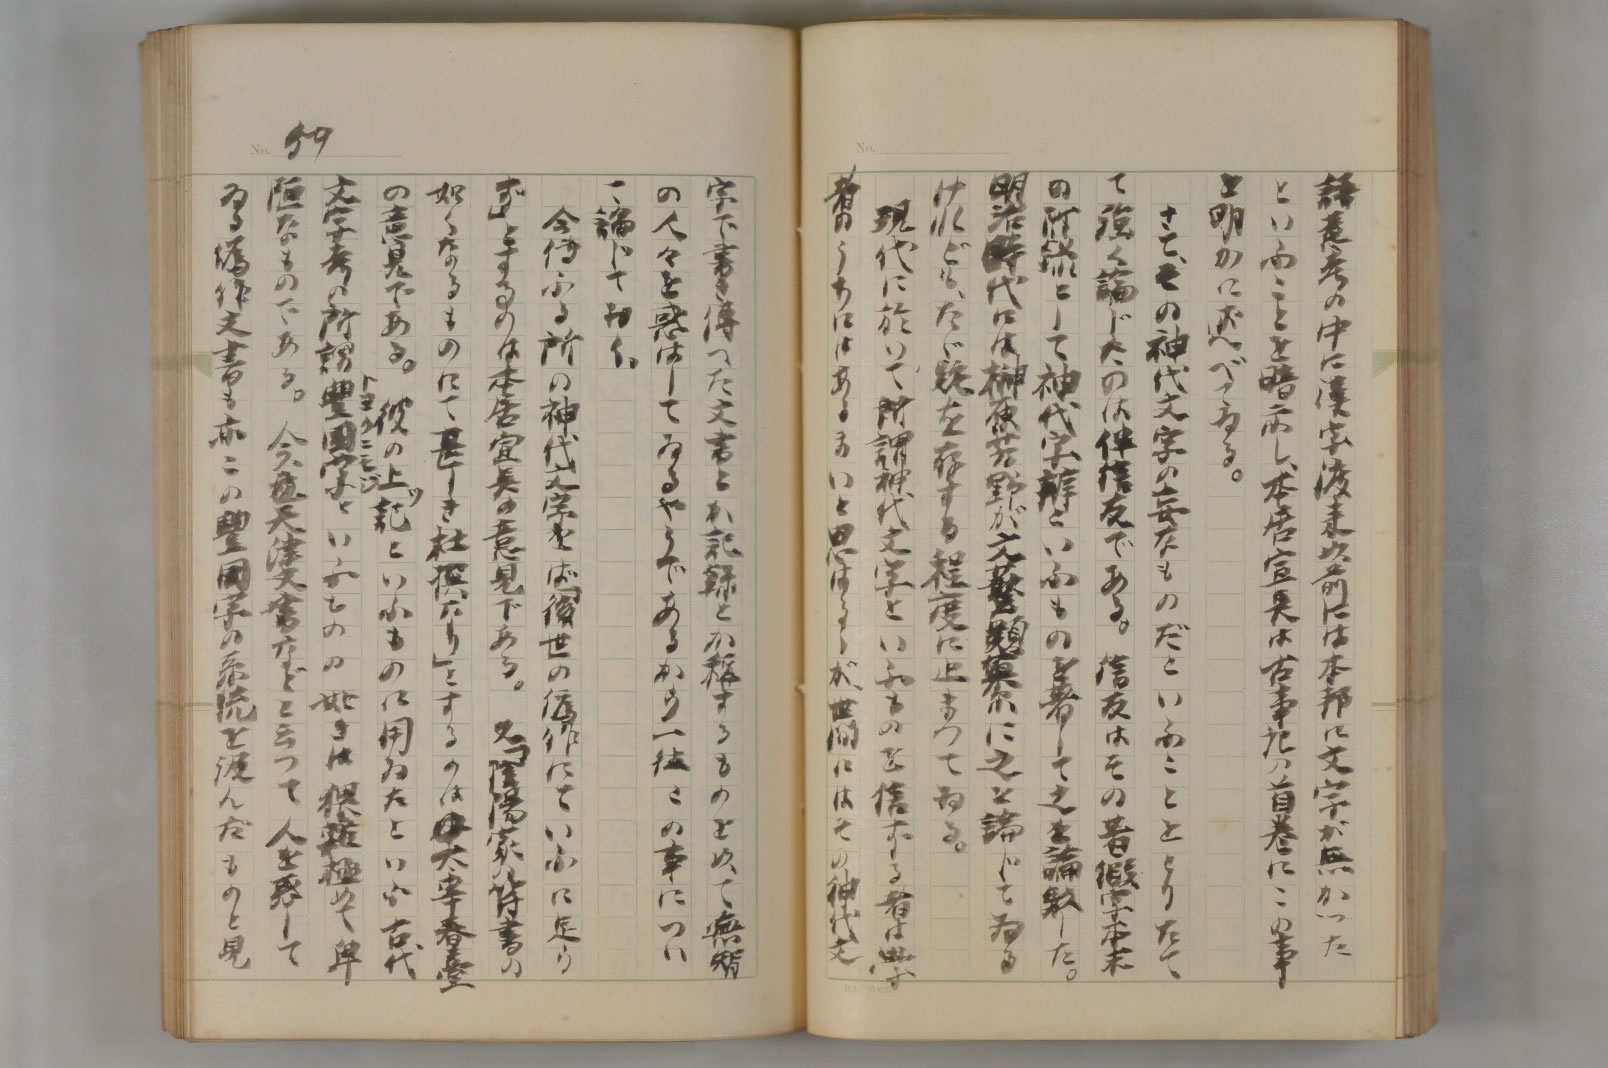 No.
語意考の中に漢字渡来以前には本邦に文字が無かつた
といふことを暗示し、本居宣長は古事記の首巻にこの事
を明かに述べてゐる。
さて、その神代文字の妄なものだといふことをとりたて
て強く論じたのは伴信友である。信友はその著假字本末
の附録として神代字辨といふもの を著して之を論駁した。
明治時代には榊原芳野が文藝類纂に之を論じてゐる
けれども、たゞ疑を存する程度に止まつてゐる。
現代に於いて所謂神代文字といふものを信ずる者は學
者のうちにはあるまいと思はるゝが、世間にはその神代文
No. 59
字で書き傳へた文書とか記録とか稱するものを以て無智
の人々を惑はしてゐるやうであるから一往この事につい
て論じておく。
今傳ふる所の神代文字をば「後世の偽作にていふに足ら
ず」とするのは本居宣長の意見である。又「陰陽家の符書の
如くなるものにて甚しき杜撰なり」とするのは太宰春臺
の意見である。彼の上ツ記といふものに用ゐたといふ古代
文字考の所謂豐國字トヨクニモジといふものの如きは猥雜極めて卑
陋なものである。今、天津文書などと云つて人を惑して
ゐる偽作文書も亦この豐國字の系統を汲んだものと見